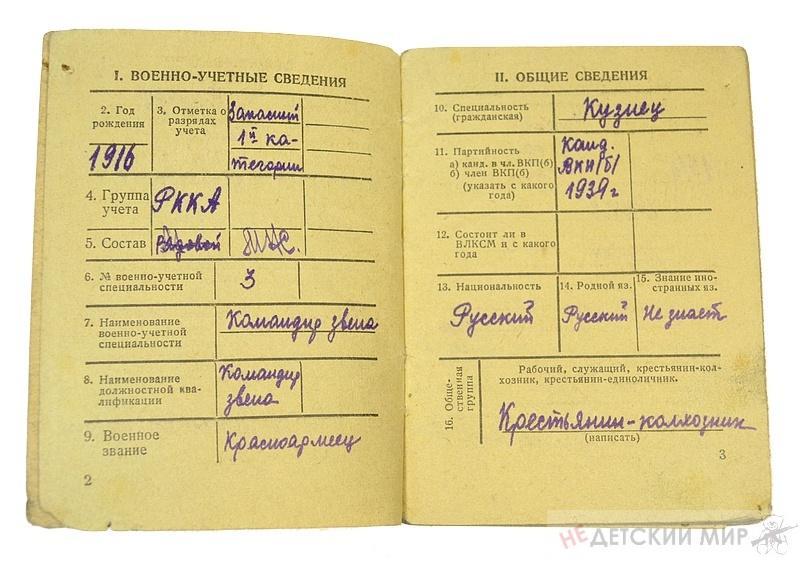 I. ВОЕННО-УЧЕТНЫЕ СВЕДЕНИЯ
2. Год
рождения
1916
3. Отметка о
разрядах
учета
Запасный
1й ка-
тегории
4. Группа
учета
РККА
5. Состав
Рядовой
МНС.
6. № военно-учетной
специальности
3
7. Наименование
военно-учетной
специальности
Командир звена
8. Наименование
должностной ква-
лификации
Командир
звена
9. Военное
звание
Красноармеец
2
II. ОБЩИЕ СВЕДЕНИЯ
10. Специальность
(гражданская)
Кузнец
11. Партийность
а) канд. в чл. ВКП(б)
б) член ВКП(б)
(указать с какого
года)
Канд.
ВКП(б)
1939 г
12. Состоит ли в
ВЛКСМ и с какого
года
13. Национальность
Русский
14. Родной яз.
Русский
15. Знание ино-
странных яз.
Не знает
16. Обще-
ственная
группа
Рабочий, служащий, крестьянин-кол-
хозник, крестьянин-единоличник.
Крестьянин-колхозник
(написать)
3
НЕДЕТСКИЙ МИР